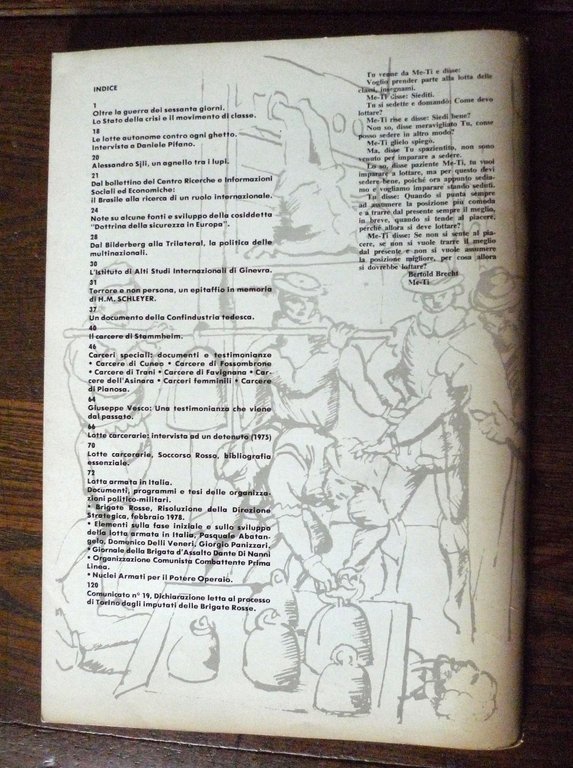 INDICE
1
Oltre la guerra dei sessanta giorni.
Lo Stato della crisi e il movimento di classe.
18
Le lotte autonome contro ogni ghetto.
Intervista a Daniele Pifano.
20
Alessandro Sjli, un agnello tra i lupi.
21
Dal bollettino del Centro Ricerche e Informazioni
Sociali ed Economiche:
il Brasile alla ricerca di un ruolo internazionale.
24
Note su alcune fonti e sviluppo della cosiddetta
"Dottrina della sicurezza in Europa".
28
Dal Bilderberg alla Trilateral, la politica delle
multinazionali.
30
L'Istituto di Alti Studi Internazionali di Ginevra.
31
Terrore e non persona, un epitaffio in memoria
di H.M. SCHLEYER.
37
Un documento della Confindustria tedesca.
40
Il carcere di Stammheim.
46
Carceri speciali: documenti e testimonianze
• Carcere di Cuneo • Carcere di Fossombrone
• Carcere di Trani • Carcere di Favignana • Car-
cere dell'Asinara • Carceri femminili • Carcere
di Pianosa.
64
Giuseppe Vesco: Una testimonianza che viene
dal passato.
66
Lotte carcerarie: intervista ad un detenuto (1975)
70
Lotte carcerarie, Soccorso Rosso, bibliografia
essenziale.
72
Lotta armata in Italia.
Documenti, programmi e tesi delle organizza-
zioni politico-militari.
• Brigate Rosse, Risoluzione della Direzione
Strategica, febbraio 1978.
• Elementi sulla fase iniziale e sullo sviluppo
della lotta armata in Italia, Pasquale Abatan-
gelo, Domenico Delli Veneri, Giorgio Panizzari.
• Giornale della Brigata d'Assalto Dante Di Nanni
• Organizzazione Comunista Combattente Prima
Linea.
• Nuclei Armati per il Potere Operaio.
120
Comunicato n° 19, Dichiarazione letta al processo
di Torino dagli imputati delle Brigate Rosse.
Tu venne da Me-Ti e disse:
Voglio prender parte alla lotta delle
classi, insegnami.
Me-Ti disse: Siediti.
Tu si sedette e domandò: Come devo
lottare?
Me-Ti rise e disse: Siedi bene?
Non so, disse meravigliato Tu, come
posso sedere in altro modo?
Me-Ti glielo spiegò.
Ma, disse Tu spazientito, non sono
venuto per imparare a sedere.
Lo so, disse paziente Me-Ti, tu vuoi
imparare a lottare, ma per questo devi
sedere bene, poiché ora appunto sedia-
mo e vogliamo imparare stando seduti.
Tu disse: Quando si punta sempre
ad assumere la posizione più comoda
e a trarre dal presente sempre il meglio,
in breve, quando si tende al piacere,
perché allora si deve lottare?
Me-Ti disse: Se non si tende al pia-
cere, se non si vuole trarre il meglio
dal presente e non si vuole assumere
la posizione migliore, per cosa allora
si dovrebbe lottare?
Bertold Brecht
Me-Ti